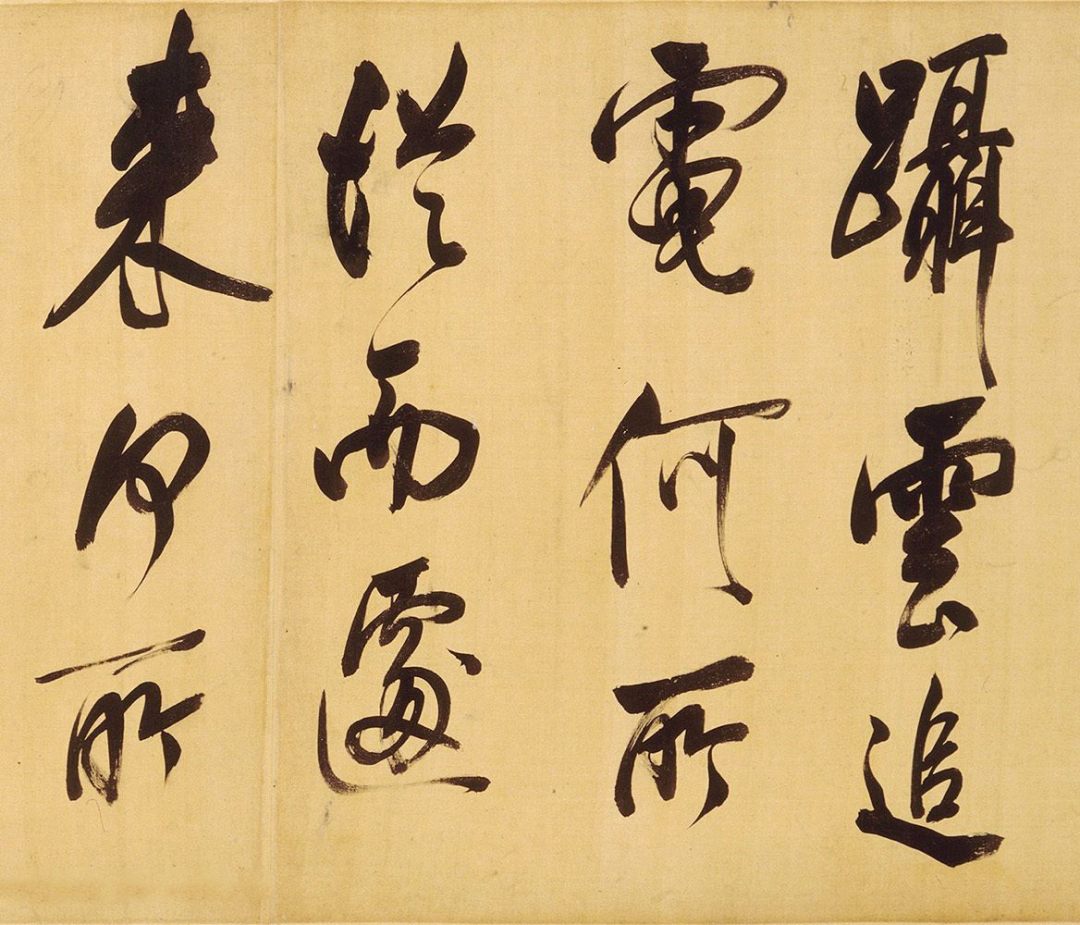 躡雲追
電何所
從而遽
来何所